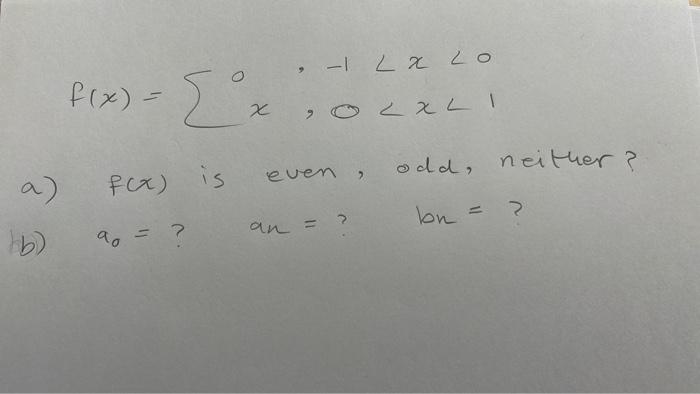 f(x) = { 0 , -1 < x < 0
x , 0 < x < 1
a) f(x) is even, odd, neither?
b) a₀ = ? an = ? bn = ?